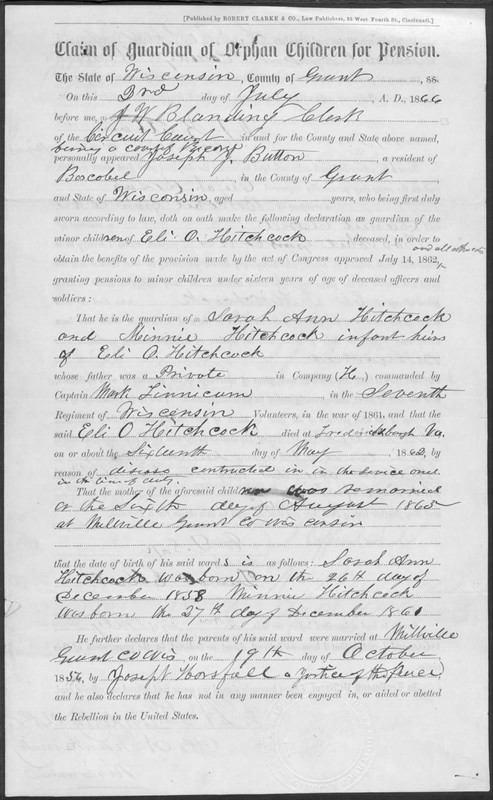 [Published by ROBERT CLARKE & CO., Law Publishers, 65 West Fourth St., Cincinnati.]
Claim of Guardian of Orphan Children for Pension.
The State of Wisconsin, County of Grant, 86
On this 2nd day of July, A. D., 1866
before me, J W Blanding Clerk
of the Circuit Court in and for the County and State above named,
being a court of Record
personally appeared Joseph J. Button, a resident of
Boscobel, in the County of Grant
and State of Wisconsin, aged years, who being first duly
sworn according to law, doth on oath make the following declaration as guardian of the
minor children of Eli O. Hitchcock deceased, in order to
and all other acts
obtain the benefits of the provision made by the act of Congress approved July 14, 1862,
granting pensions to minor children under sixteen years of age of deceased officers and
soldiers:
That he is the guardian of Sarah Ann Hitchcock
and Minnie Hitchcock infant heirs
of Eli O. Hitchcock
whose father was a Private in Company (H,) commanded by
Captain Mark Finnicum, in the Seventh
Regiment of Wisconsin Volunteers, in the war of 1861, and that the
said Eli O Hitchcock died at Fredericksburgh Va.
on or about the day of May, 1862, by
reason of disease contracted in the service and
in the line of duty.
That the mother of the aforesaid children was remarried
on the Sixth day of August 1865
at Millville Grant Co Wisconsin
that the date of birth of his said wards is as follows: Sarah Ann
Hitchcock was born on the 26th day of
December 1858 Minnie Hitchcock
was born the 27th day of December 1860
He further declares that the parents of his said ward were married at Millville
Grant Co Wis, on the 19th day of October
1856, by Joseph Horsfall a Justice of the Peace,
and he also declares that he has not in any manner been engaged in, or aided or abetted
the Rebellion in the United States.